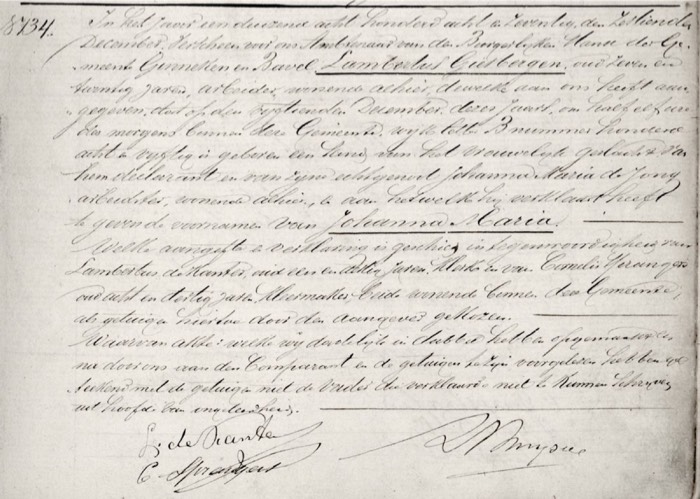 8734.
In het Jaar een duizend acht honderd acht en zeventig, den zestienden
December, verscheen voor ons Ambtenaar van den Burgerlijken Stand der Ge-
meente Ginneken en Bavel Lambertus Gielbergen, oud zeven en
twintig jaren, arbeider, wonende alhier, dewelke aan ons heeft aan-
gegeven, dat op den vyftienden December dezes Jaars, om half elf uur
des morgens binnen deze Gemeente, wijk letter B nummer honderd
acht en vyftig is geboren een kind van het vrouwelijk geslacht van
hem declarant en van zyne echtgenoot Johanna Maria de Jong
arbeidster, wonende alhier, en aan hetwelk hij verklaart heeft
te geven de voornamen van Johanna Maria.
Welke aangifte en verklaring is geschied in tegenwoordigheid van
Lambertus de Kanter, oud een en dertig Jaren, klerk en van Cornelis
oud acht en dertig jaren kleermaker beide wonende binnen deze Gemeente,
als getuigen hiertoe door den aangever gekozen.
Waarvan akte: welke wij dadelijk in dubbel hebben opgemaakt en
na door ons aan den Comparant en de getuigen te zijn voorgelezen hebben ge-
teekend met de getuigen met de vader die verklaarde niet te kunnen schryven
uit hoofde van ongeleerdheid.
L. de Kanter
C.